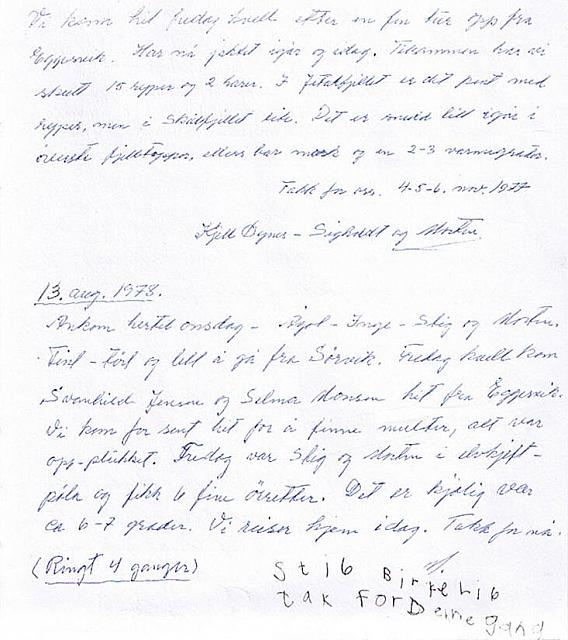 Vi kom hit fredag kveld efter en fin tur opp fra
Eggesvik. Har nå jaktet igår og idag. Tilsammen har vi
skutt 15 ryper og 2 harer. I er det pent med
ryper, men i Skålfjellet ikke. Det er snødd litt igår i
øverste fjelltopper, ellers bar mark og en 2-3 varmegrader.
Takk for oss. 4-5-6. nov. 1977
Kjell - og Morten.
13. aug. 1978.
Ankom hertil onsdag - - Inge - Stig og Morten.
Fint - og lett å gå fra Sørvik. Fredag kveld kom
Svanhild Jensen og Selma Monsen hit fra Eggesvik.
Vi kom for sent hit for å finne multer, alt var
opp-plukket. Fredag var Stig og Morten i
og fikk 6 fine ørretter. Det er kjølig vær
ca 6-7 grader. Vi reiser hjem idag. Takk for nå.
(Ringt 4 ganger)
Stib Birkelib
tak ForDenne gand